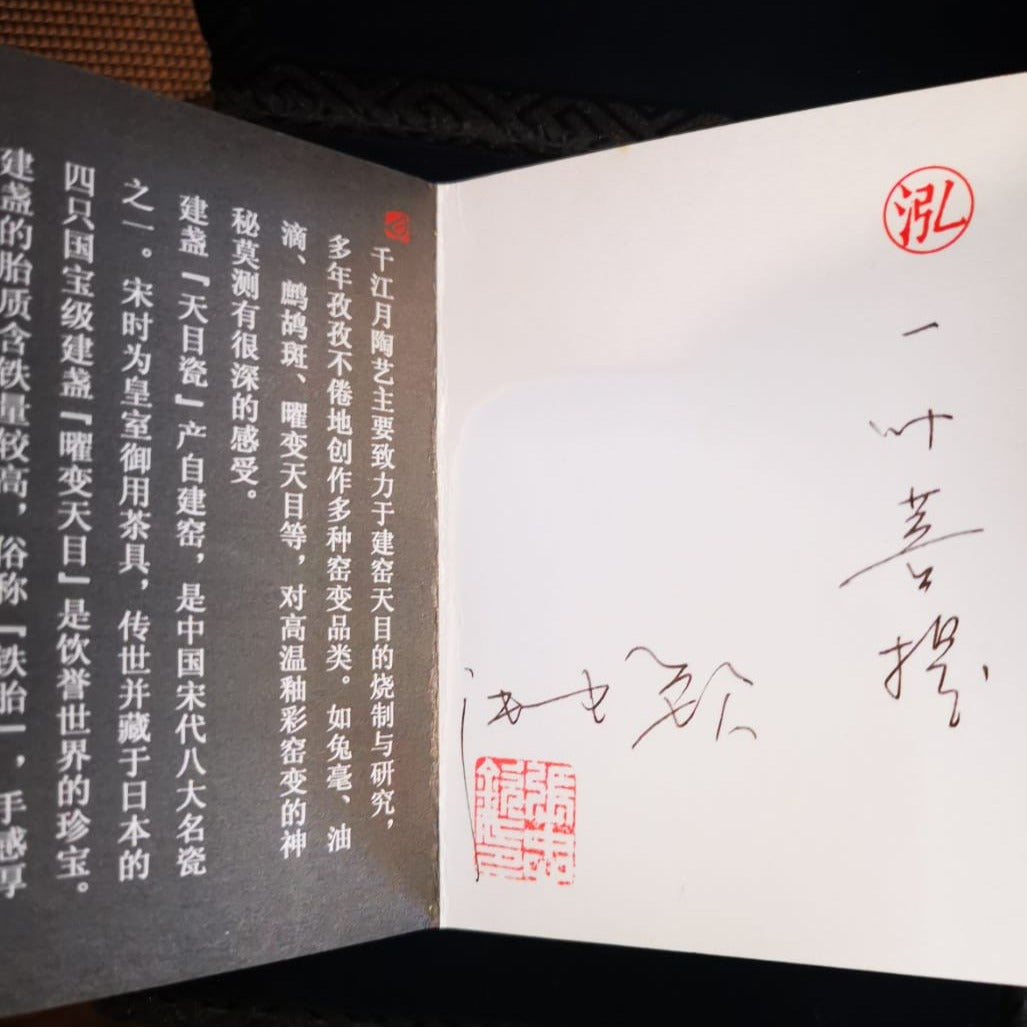 千江月陶艺主要致力于建窑天目的烧制与研究，
多年孜孜不倦地创作多种窑变品类。如兔毫、油
滴、鹧鸪斑、曜变天目等，对高温釉彩窑变的神
秘莫测有很深的感受。
建盏『天目瓷』产自建窑，是中国宋代八大名瓷
之一。宋时为皇室御用茶具，传世并藏于日本的
四只国宝级建盏『曜变天目』是饮誉世界的珍宝。
建盏的胎质含铁量较高，俗称『铁胎』，手感厚
泓
一叶菩提